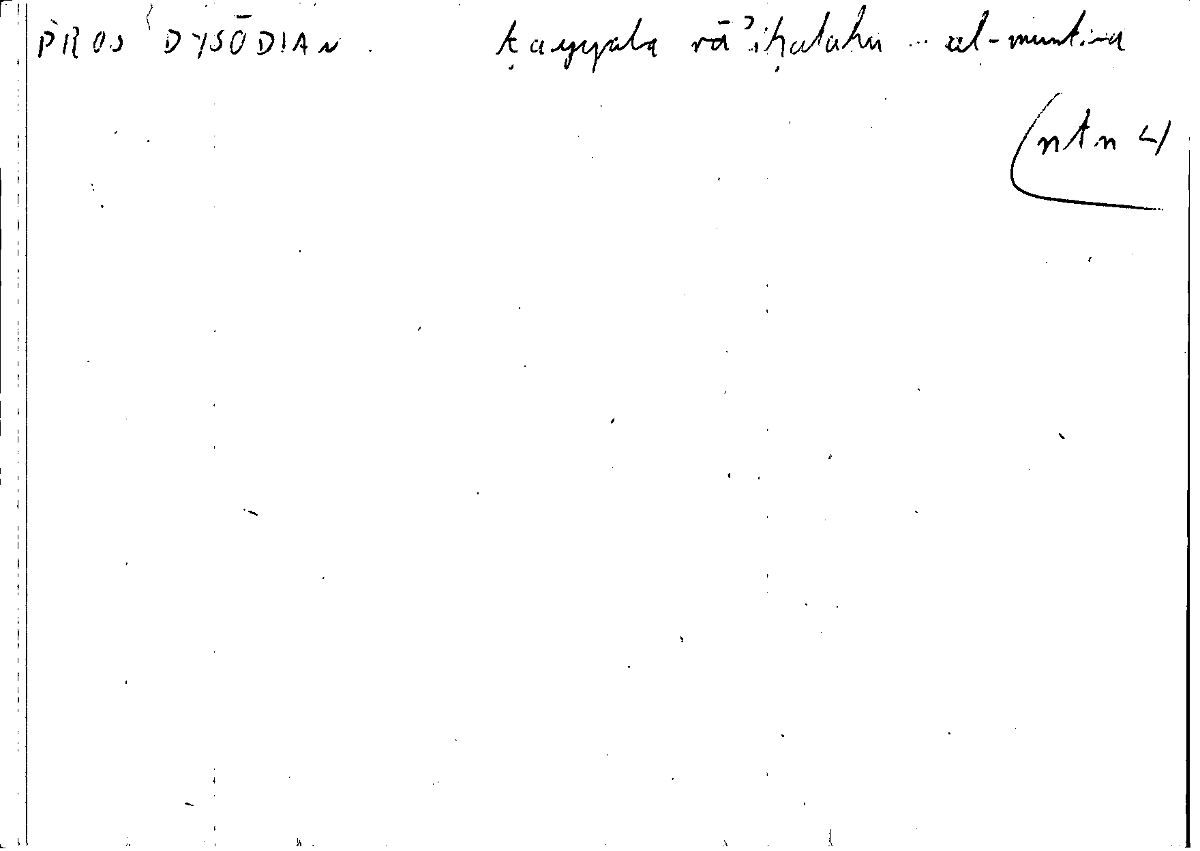 PROS DYSŌDIAN. ṭayyaba rāʾiḥatahu ... al-muntina
(ntn 4